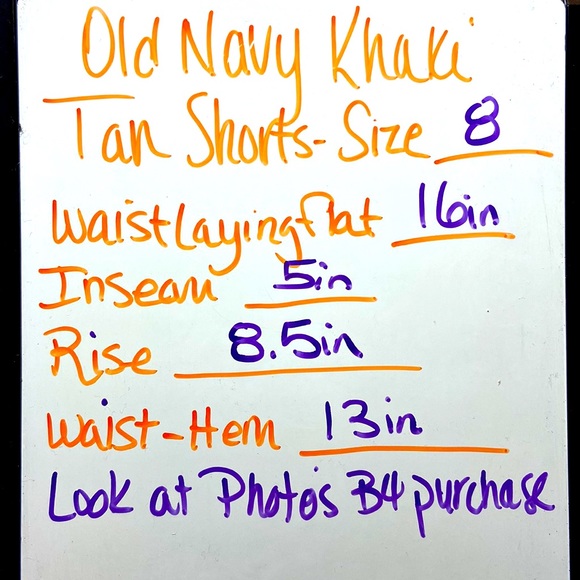 Old Navy Khaki
Tan Shorts-Size 8
Waist Laying flat 16in
Inseam 5in
Rise 8.5in
Waist-Hem 13in
Look at Photo's B4 purchase